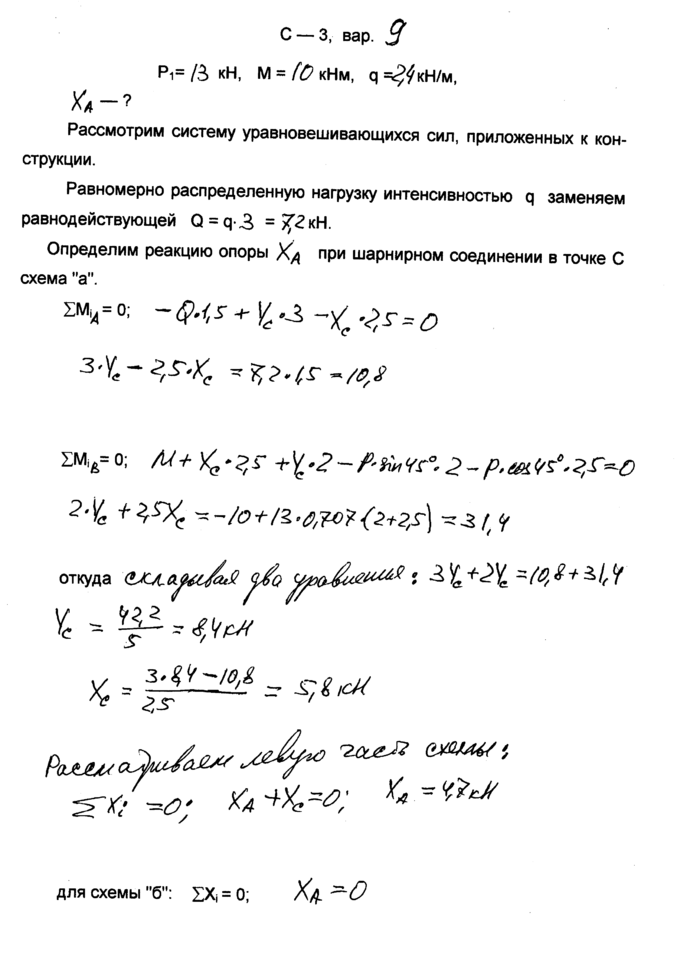 С — 3, вар. 9
P₁= 13 кН, М = 10 кНм, q =2,4 кН/м,
X_A — ?
Рассмотрим систему уравновешивающихся сил, приложенных к кон-
струкции.
Равномерно распределенную нагрузку интенсивностью q заменяем
равнодействующей Q = q·3 = 7,2 кН.
Определим реакцию опоры X_A при шарнирном соединении в точке С
схема "а".
∑M_iA = 0; −Q·1,5 + Y_C·3 − X_C·2,5 = 0
3·Y_C − 2,5·X_C = 7,2·1,5 = 10,8
∑M_iB = 0; M + X_C·2,5 + Y_C·2 − P·sin45°·2 − P·cos45°·2,5 = 0
2·Y_C + 2,5X_C = −10 + 13·0,707·(2+2,5) = 31,4
откуда складывая два уравнения: 3Y_C + 2Y_C = 10,8 + 31,4
Y_C = 42,2/5 = 8,4 кН
X_C = (3·8,4 − 10,8)/2,5 = 5,8 кН
Рассматриваем левую часть схемы:
∑X_i = 0; X_A + X_C = 0; X_A = 4,7 кН
для схемы "б": ∑X_i = 0; X_A = 0